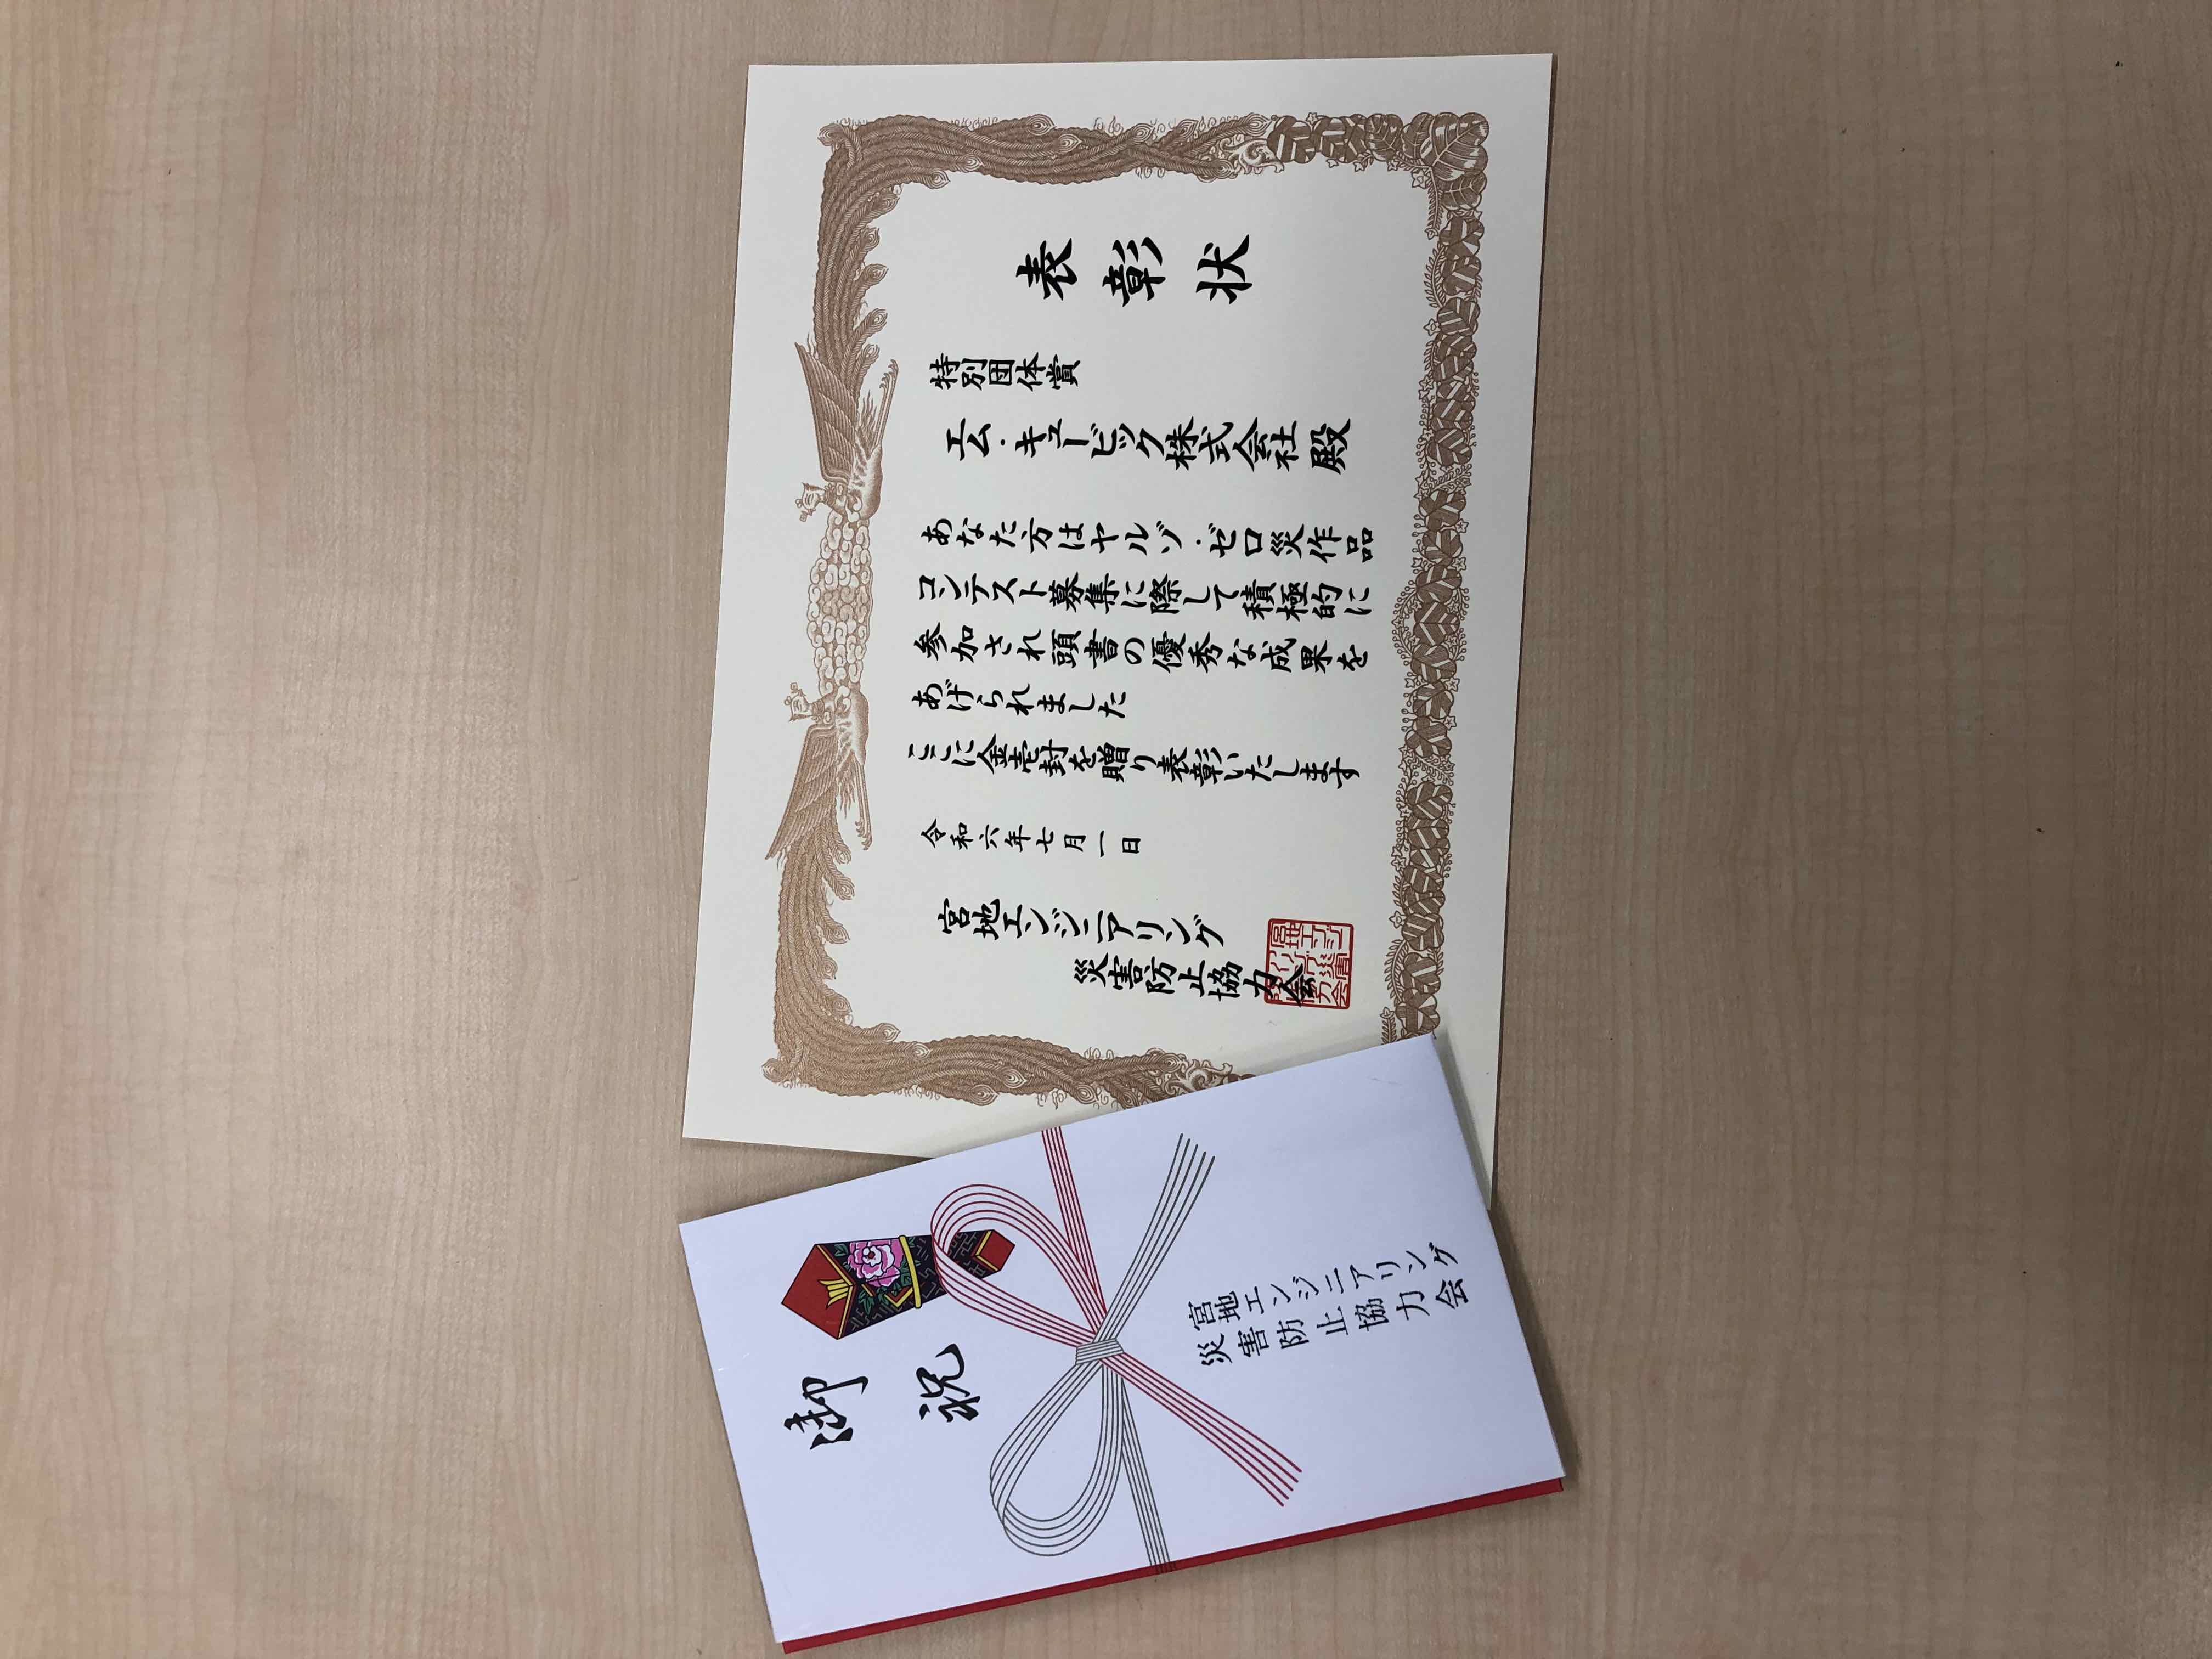 表彰状
特別団体賞
エム・キュービック株式会社殿
あなた方はヤルゾ・ゼロ災作品
コンテスト募集に際して積極的に
参加され頭書の優秀な成果を
あげられました
ここに金壱封を贈り表彰いたします
令和六年七月一日
宮地エンジニアリング
災害防止協力会
御祝
宮地エンジニアリング
災害防止協力会